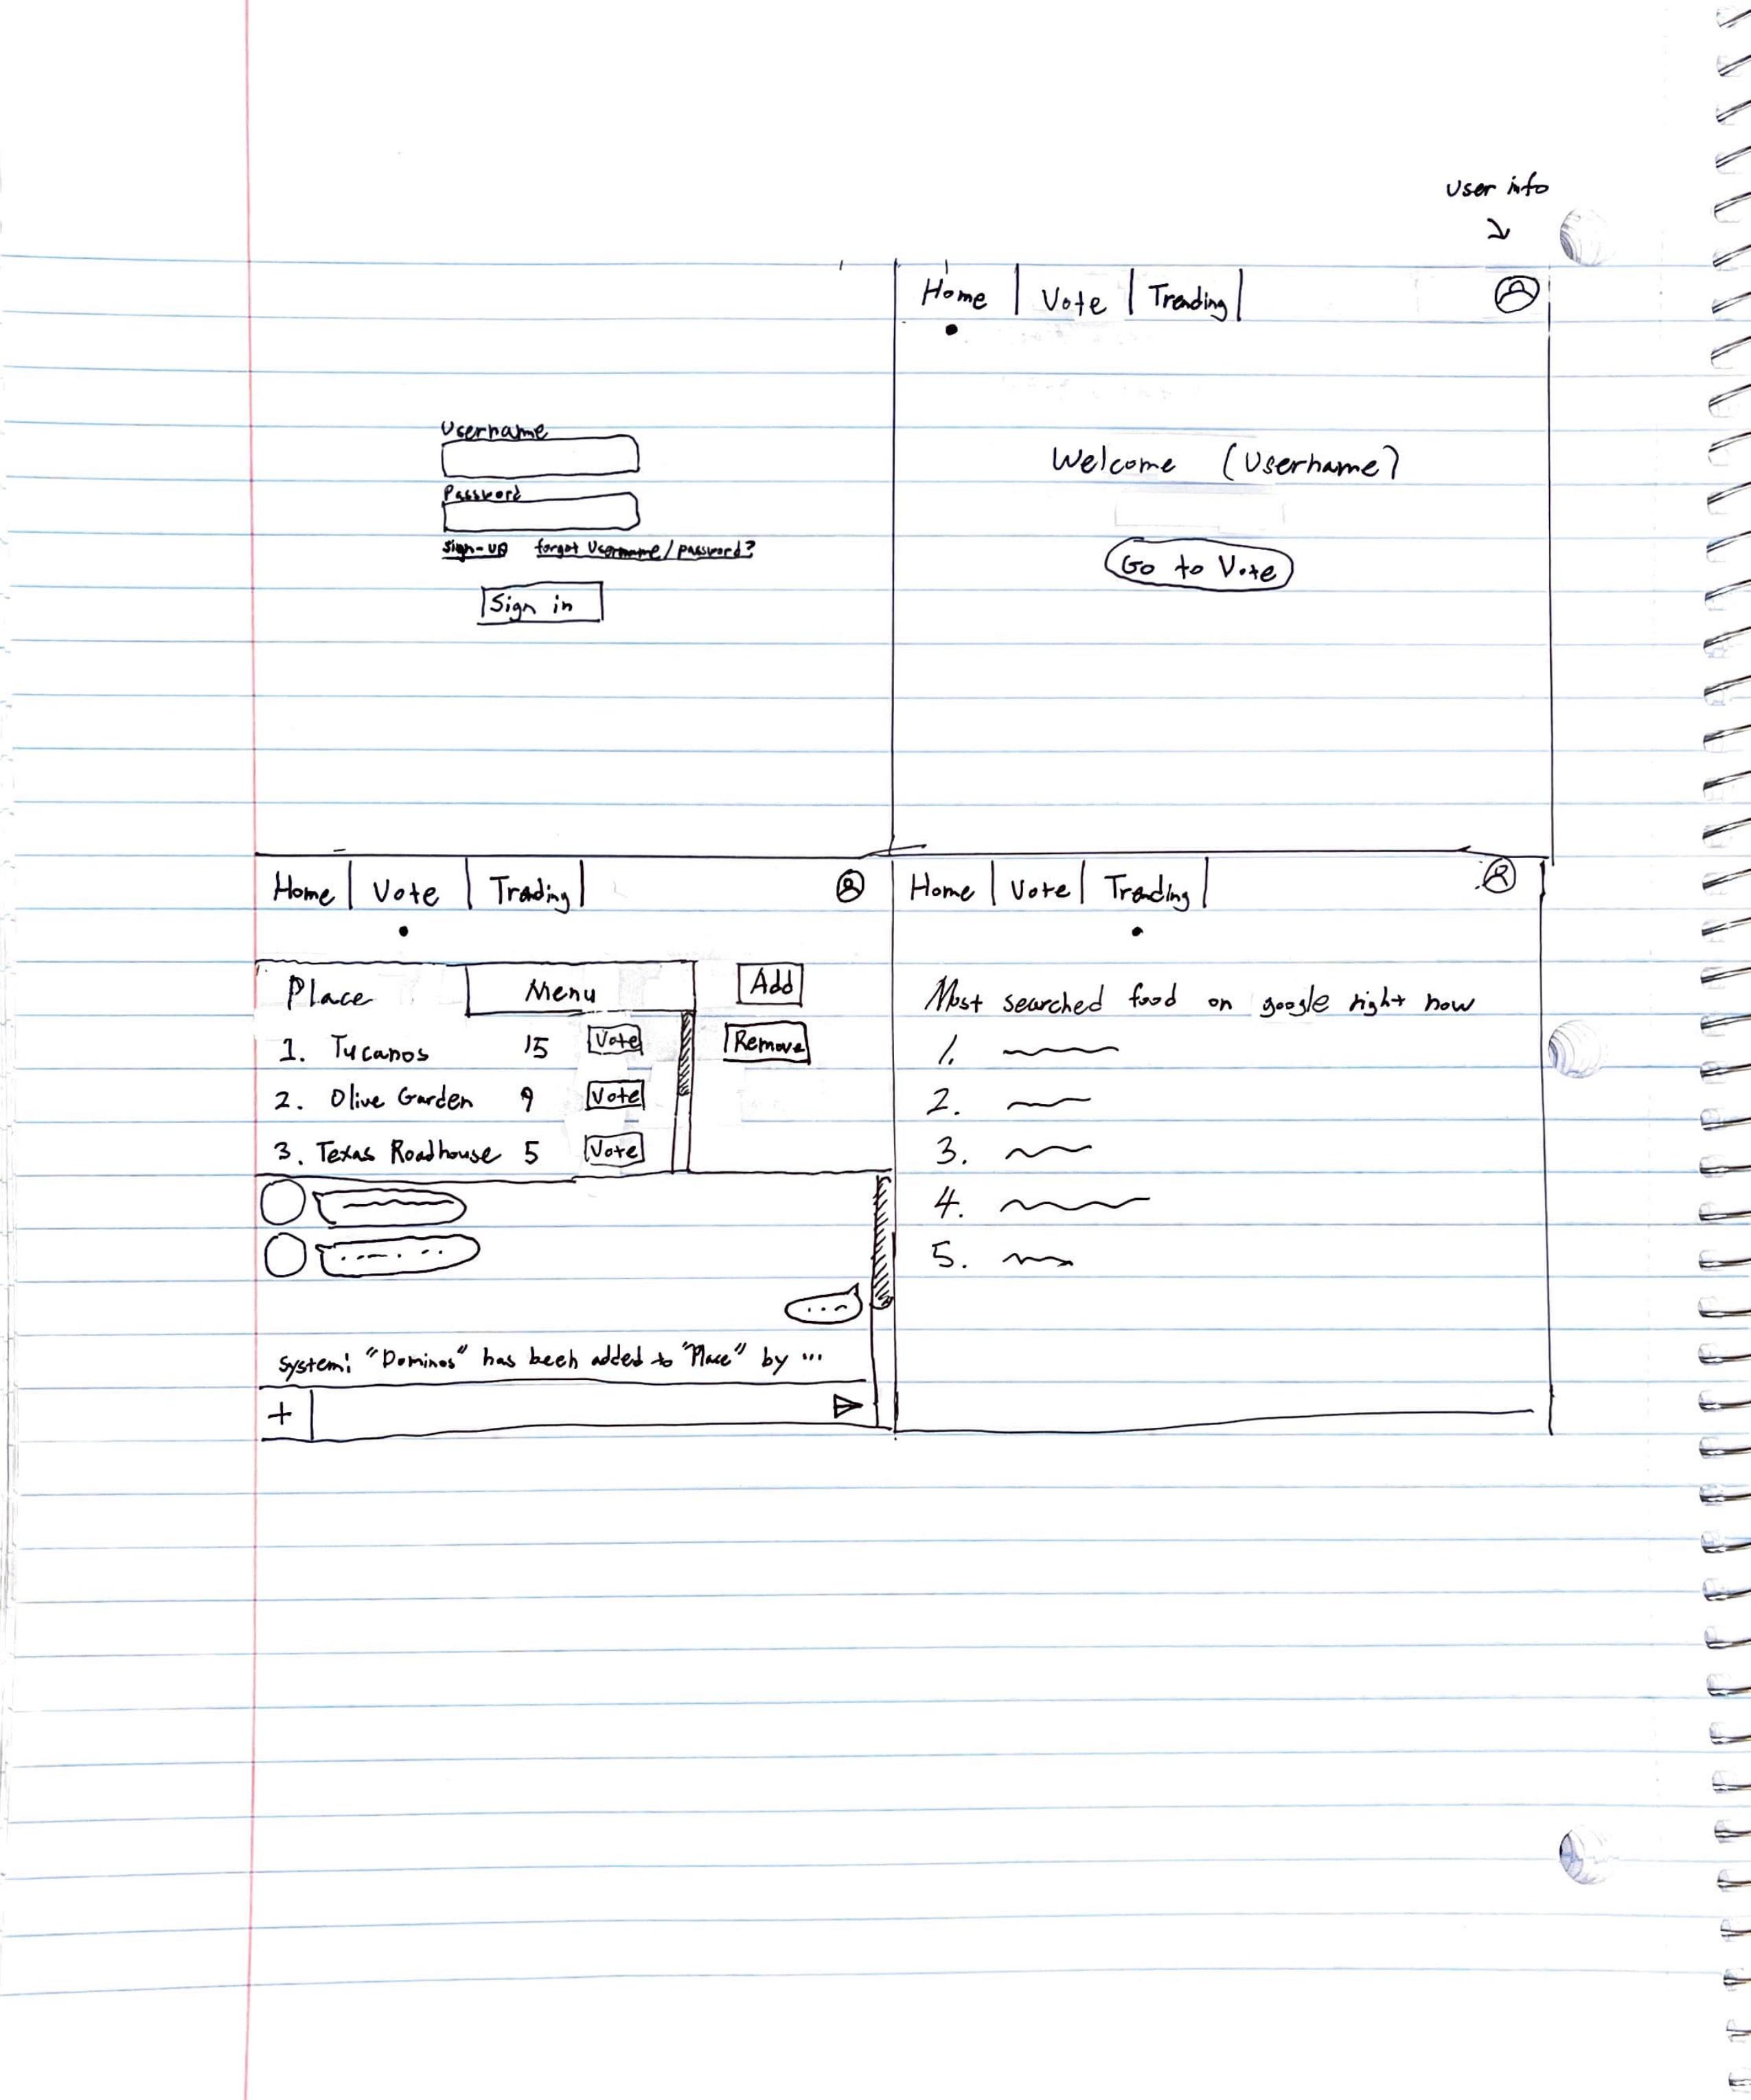 user info
Home | Vote | Trending |
Username
Password
sign-up forgot Username/password?
Sign in
Welcome (Username)
Go to Vote
Home | Vote | Trending |
Place Menu Add
1. Tucanos 15 Vote Remove
2. Olive Garden 9 Vote
3. Texas Roadhouse 5 Vote
system: "Dominos" has been added to "Place" by ...
+
Home | Vote | Trending |
Most searched food on google right now
1.
2.
3.
4.
5.